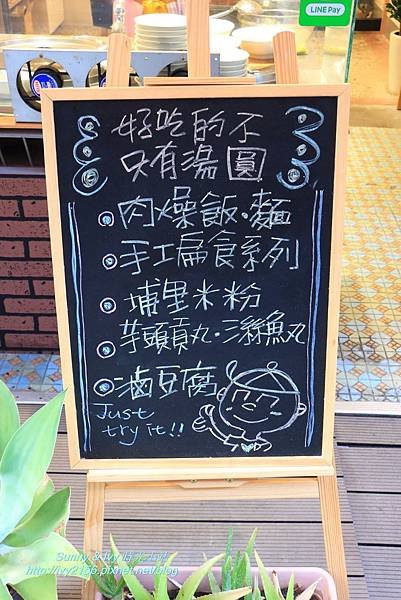 LINE Pay
好吃的不
只有湯圓
肉燥飯·麵
手工扁食系列
埔里米粉
芋頭貢丸·旗魚丸
滷豆腐
Just
try it!!
http://ivy2166.pixnet.net/blog